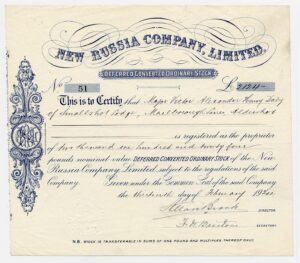 NEW RUSSIA COMPANY, LIMITED.
DEFERRED CONVERTED ORDINARY STOCK
No 51 £ 2124-
This is to Certify that Major Victor Alexander Henry Daly
of Smallshot Lodge, Marlborough Lines Aldershot
is registered as the proprietor
of two thousand one hundred and twenty four
pounds nominal value DEFERRED CONVERTED ORDINARY STOCK of the New
Russia Company Limited, subject to the regulations of the said
Company. Given under the Common Seal of the said Company
the thirteenth day of February 1920
DIRECTOR
SECRETARY
N.B. STOCK IS TRANSFERABLE IN SUMS OF ONE POUND AND MULTIPLES THEREOF ONLY.